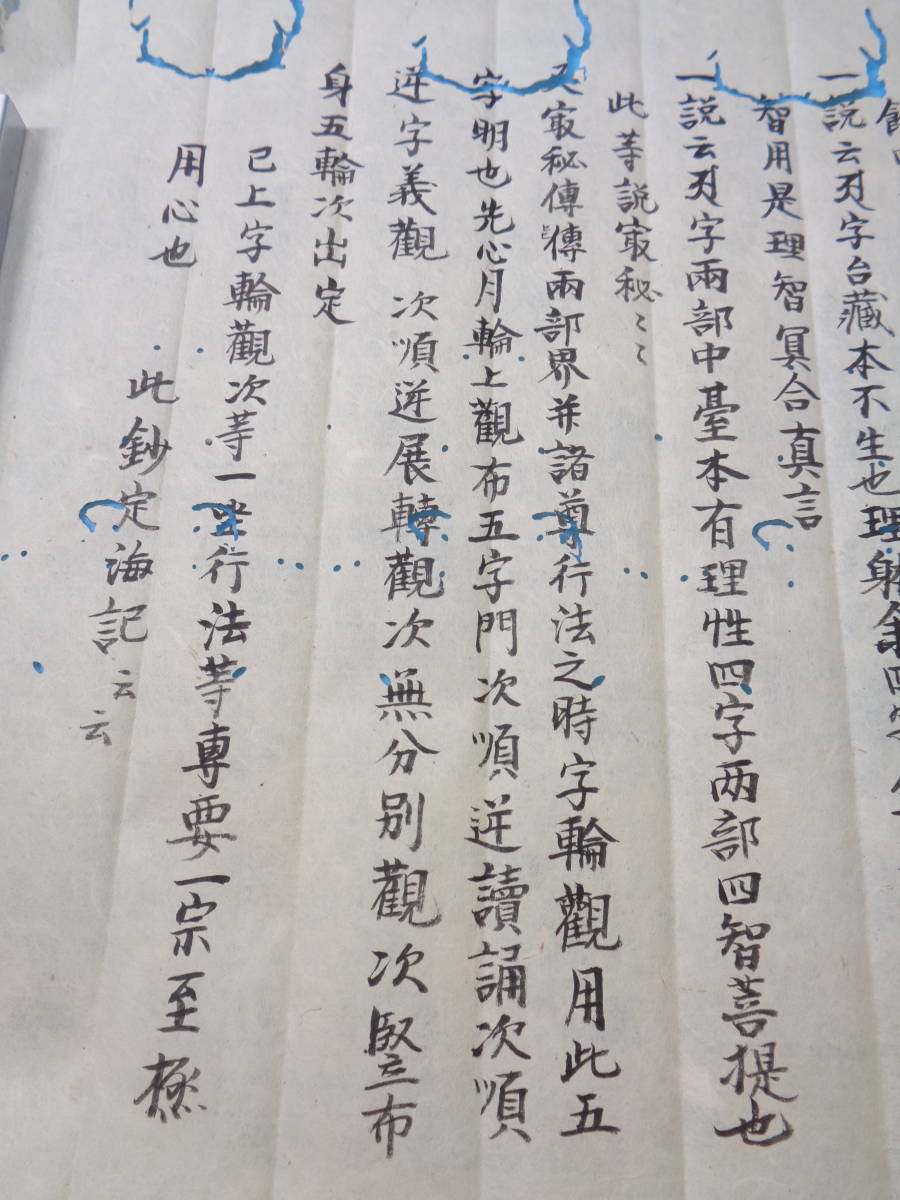 一説云 字台藏本不生也理躰余四字
智用是理智冥合真言
一説云 字兩部中臺本有理性四字两部四智菩提也
此等説㝡秘〻〻
又㝡秘傳傳兩部界并諸尊行法之時字輪觀用此五
字明也先心月輪上觀布五字門次順逆讀誦次順
逆字義觀 次順逆展轉觀次無分別觀次竪布
身五輪次出定
已上字輪觀次等一 行法等専要一宗至極
用心也
此鈔定海記云云